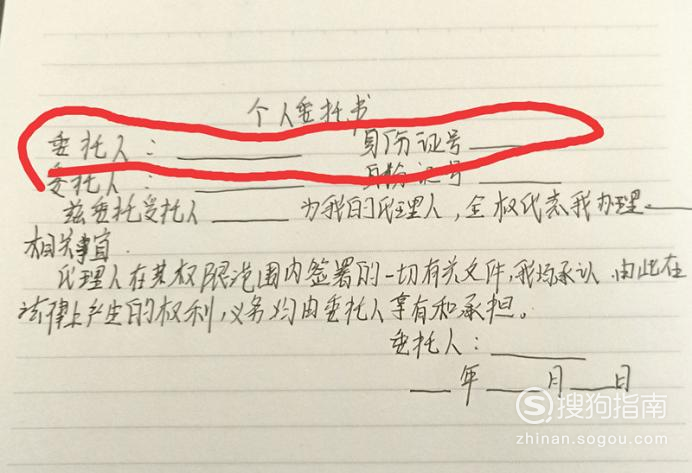 个人委托书
委托人：______ 身份证号______
受托人：______ 身份证号______
兹委托受托人______为我的代理人，全权代表我办理______
相关事宜.
代理人在其权限范围内签署的一切有关文件，我均承认，由此在
法律上产生的权利，义务均由委托人享有和承担。
委托人：______
___年___月___日
S 搜狗指南
zhinan.sogou.com